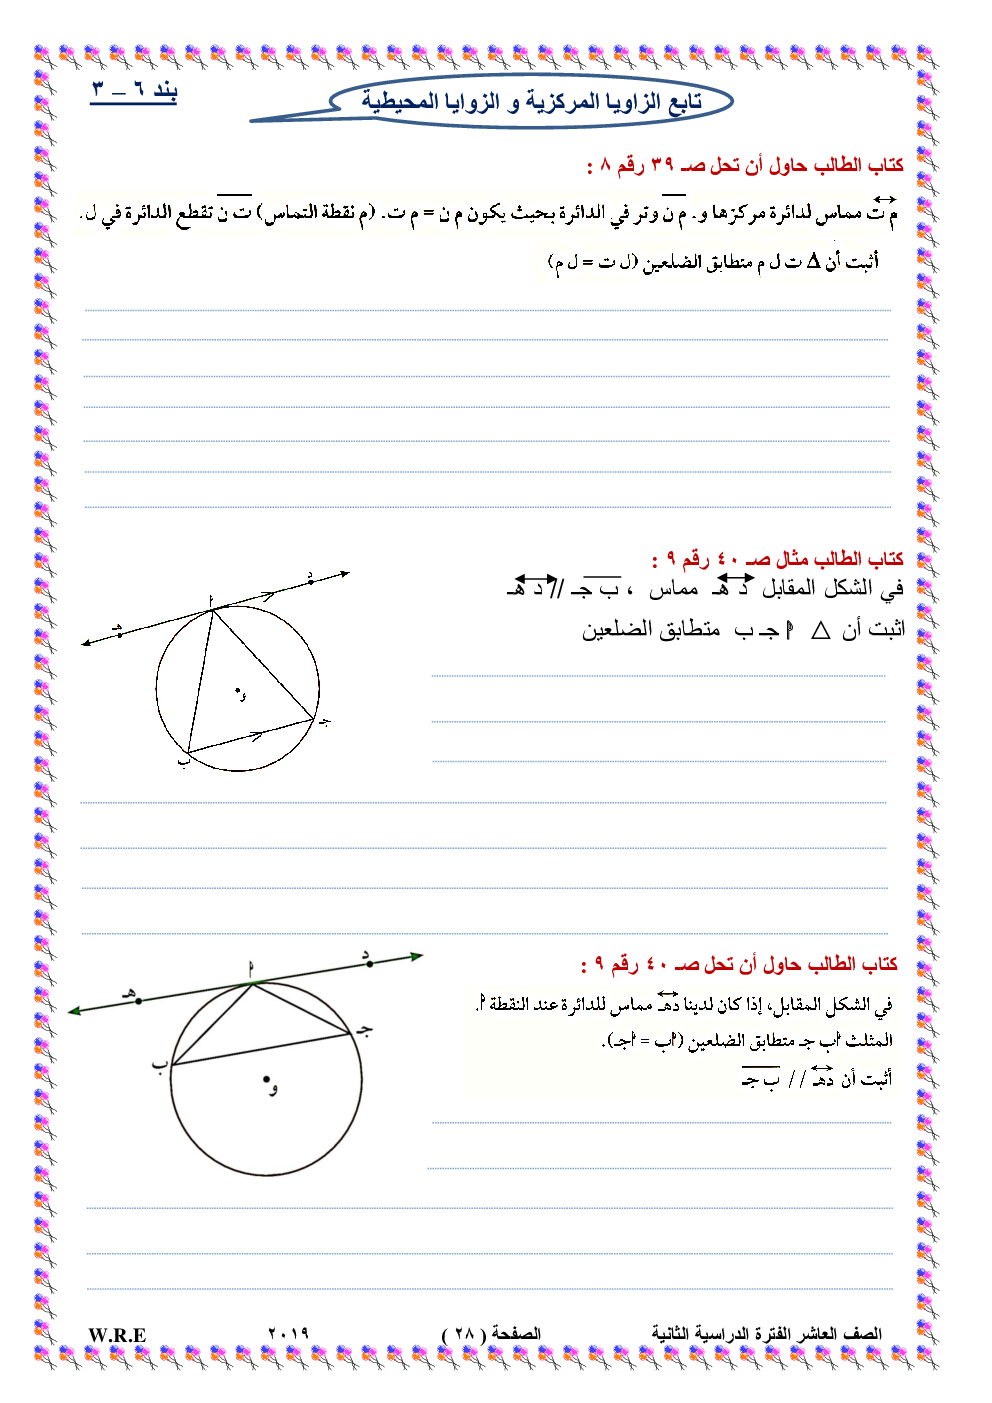 بند ٦ – ٣
تابع الزاويا المركزية و الزوايا المحيطية
كتاب الطالب حاول أن تحل صـ ٣٩ رقم ٨ :
م ت مماس لدائرة مركزها و. م ن وتر في الدائرة بحيث يكون م ن = م ت. (م نقطة التماس) ت ن تقطع الدائرة في ل.
أثبت أن Δ ت ل م متطابق الضلعين (ل ت = ل م)
كتاب الطالب مثال صـ ٤٠ رقم ٩ :
في الشكل المقابل د هـ مماس ، ب جـ // د هـ
اثبت أن △ أ جـ ب متطابق الضلعين
د
أ
هـ
و
جـ
ب
كتاب الطالب حاول أن تحل صـ ٤٠ رقم ٩ :
في الشكل المقابل، إذا كان لدينا دهـ مماس للدائرة عند النقطة أ.
المثلث أب جـ متطابق الضلعين (أب = أجـ).
أثبت أن دهـ // ب جـ
د
أ
هـ
جـ
ب
و
الصف العاشر الفترة الدراسية الثانية الصفحة ( ٢٨ ) ٢٠١٩ W.R.E